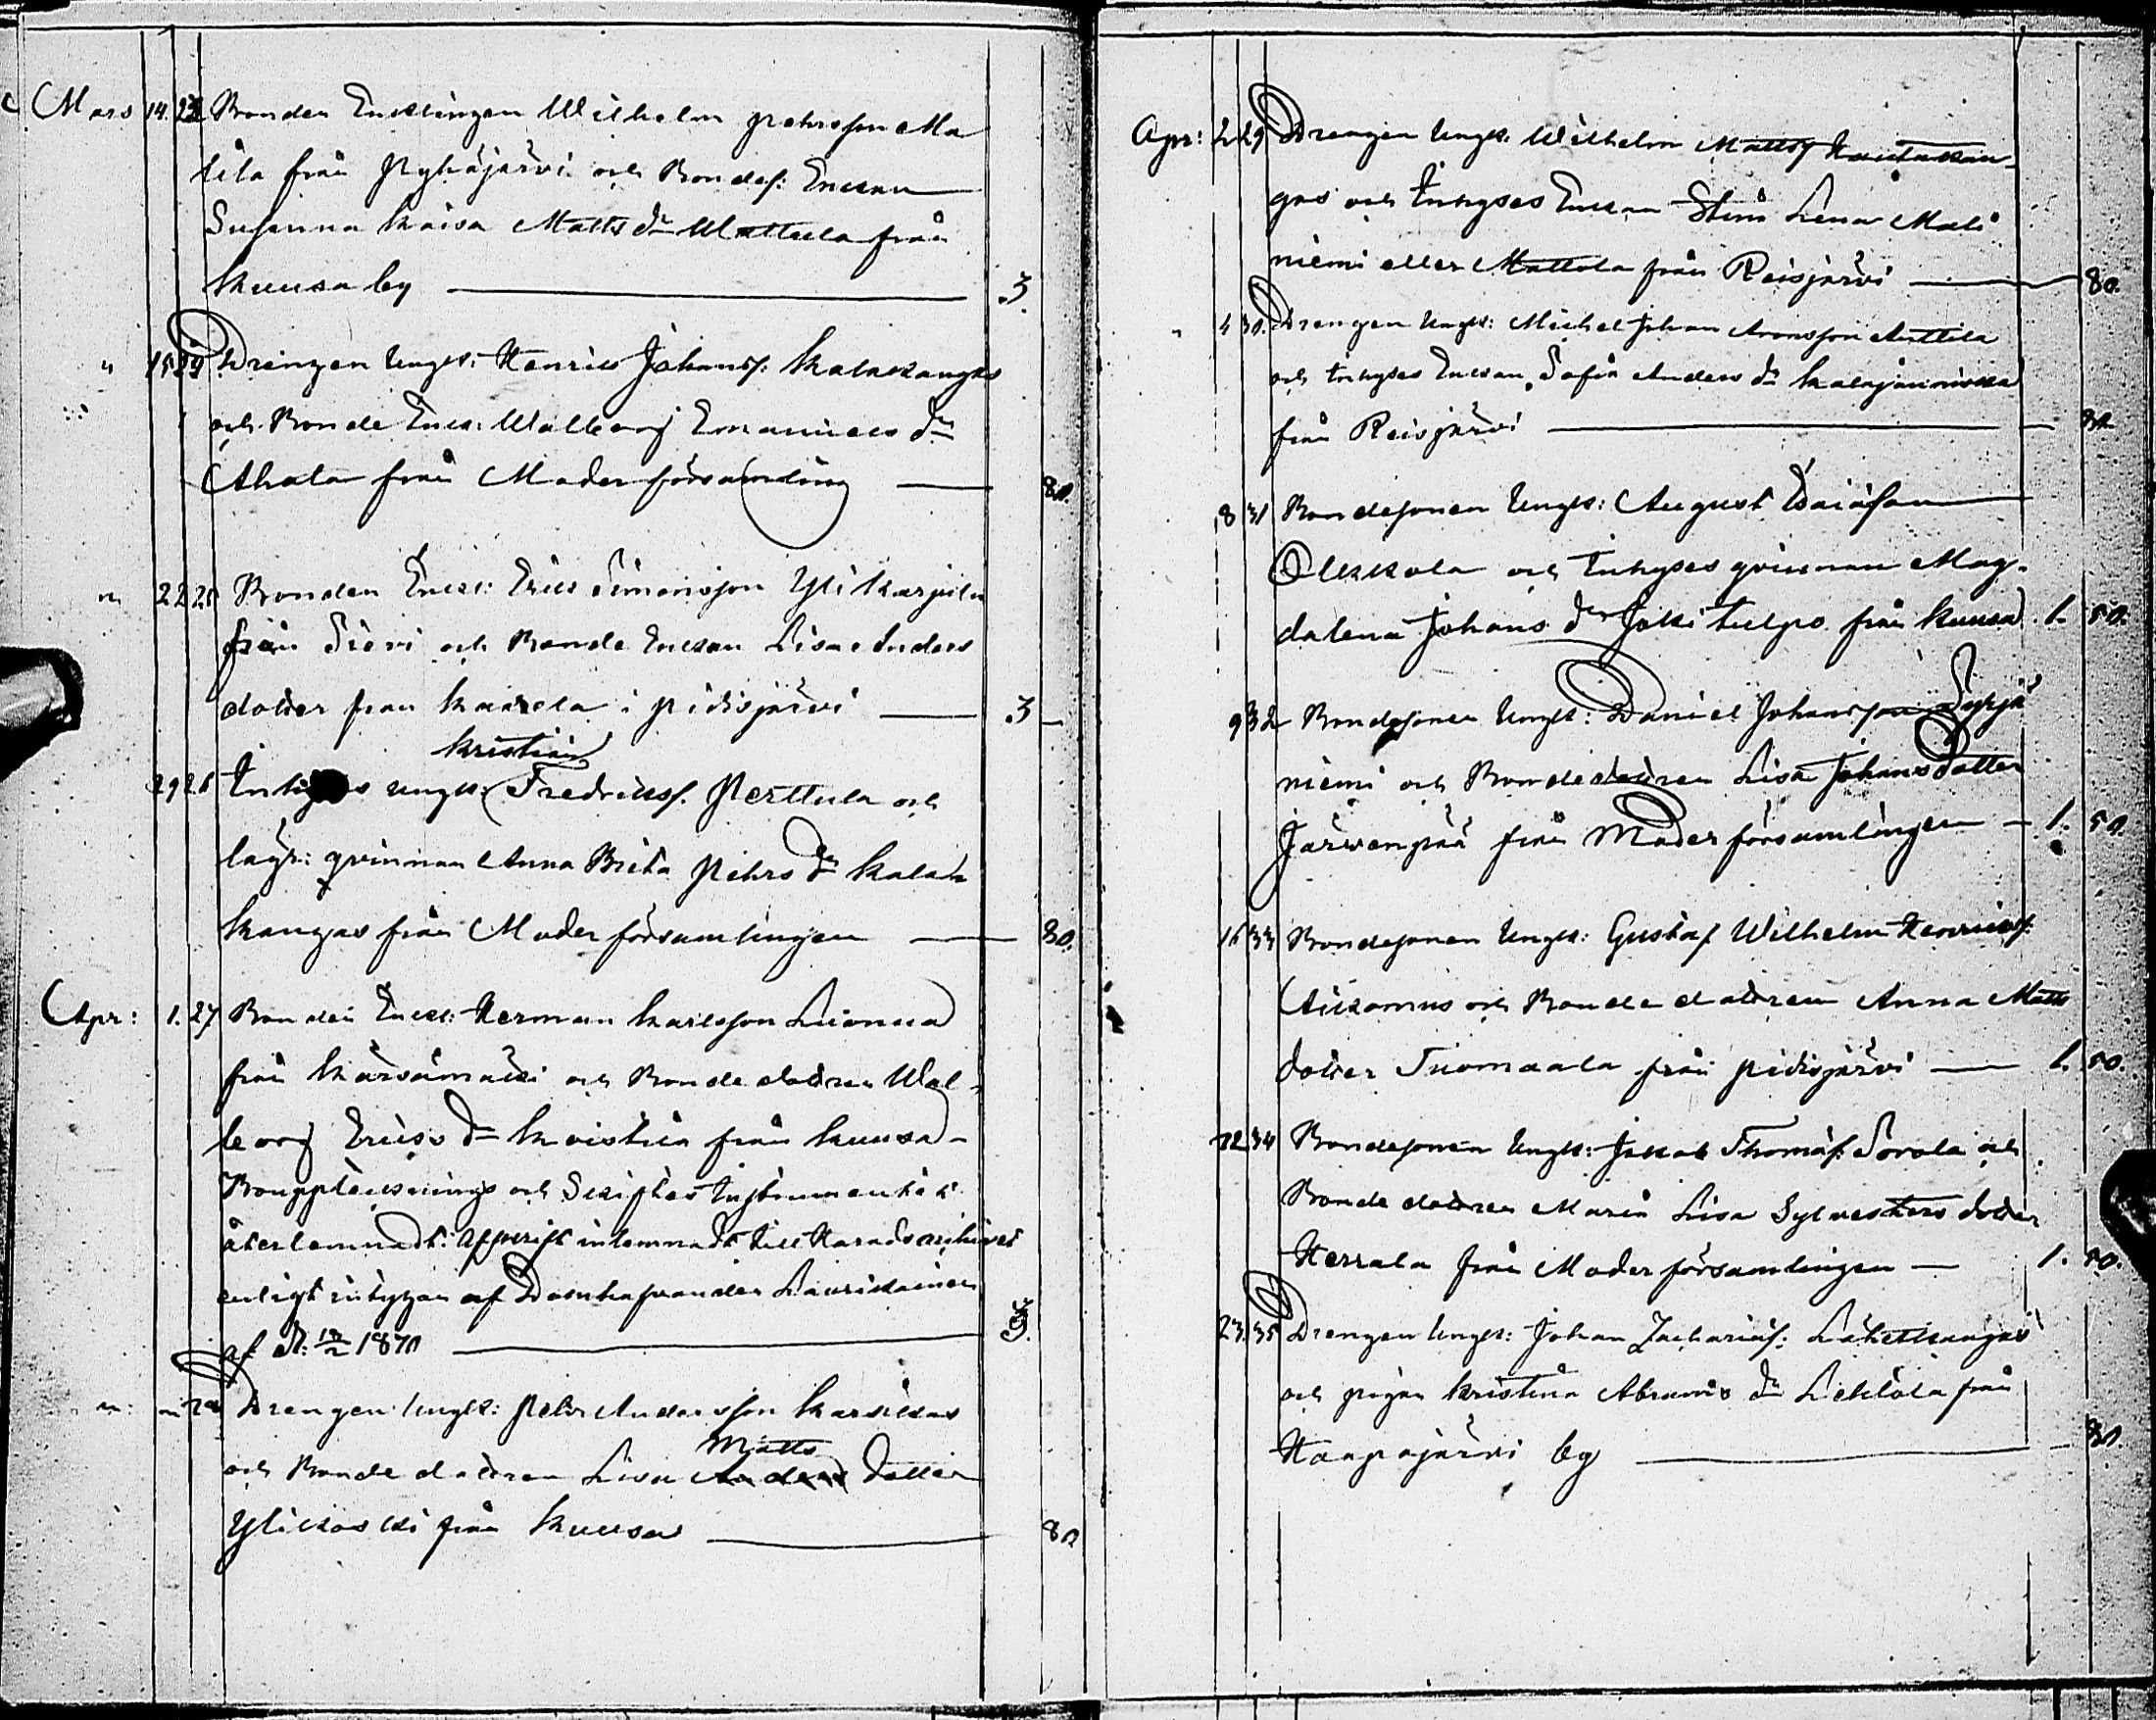 Mars 14. 23 Bonden Encklingen Wilhelm Pehrsson Ma
tila från Pyhäjärvi och Bondes: Enckan
Susanna Kaisa Matts dr Mattila från
Kuusa by 3.
" 15 24 Drengen Ungk: Henric Johans: Kalakangas
och Bonde Enck: Walborg Emanuels dr
Ahola från Moderförsamling 80.
" 22 25 Bonden Enck: Eric Simonsson Ylikarjula
från Sievi och Bonde Enckan Lisa Anders
dotter från Kaarela i Pidisjärvi 3 —
Kristian
29 26 Inhyses ungk: Fredricks. Perttula och
qvinnan Anna Brita Pehrs dr Kala
kangas från Moderförsamlingen 80.
Apr: 1. 27 Bonden Enck: Herman Karlsson
från Kärsämäki och Bonde dottren Wal-
borg Erics dr Koistila från Kuusa –
Bouppteknings och Skiftes Instrumentet
återlemnadt: Afskrift inlemnadt till Härads archivet
enligt intygan af Domhafvanden Lauridainen
af d: 18/2 1870 3.
" " 28 Drengen Ungk: Pehr Andersson Karsikas
Matts
och Bonde dottren Lisa Anders dotter
Ylikoski från Kuusa 80
Apr: 2 29 Drengen Ungk: Wilhelm Matts Hautakan
gas och Inhyses Enckan Stina Lena Mali
niemi eller Mattola från Reisjärvi 80.
" 4 30. Drengen Ungk: Michel Johan Aronsson Anttila
och Inhyses Enckan Sofia Anders dr Kalajanniska
från Reisjärvi 80
8 31 Bondesonen Ungk: August Esaiasson
Olkkola och Inhyses qvinnan Mag-
dalena Johans dr Jokitulpo från Kuusa 1. 50.
9 32 Bondesonen Ungk: Daniel Johansson Syrjä
niemi och Bondedottren Lisa Johans dotter
Järwenpää från Moderförsamlingen 1. 50.
16 33 Bondesonen Ungk: Gustaf Wilhelm Henrics:
och Bonde dottren Anna Matts
dotter Tuomaala från Pidisjärvi 1. 50.
22 34 Bondesonen Ungk: Jakob Thomas: Sorola och
Bonde dottren Maria Lisa Sylvesters dotter
Herrala från Moderförsamlingen 1. 50.
23. 35 Drengen Ungk: Johan Zacharias: Lähetkangas
och pigan Kristina Abrams dr Lehtola från
Haapajärvi by 80.